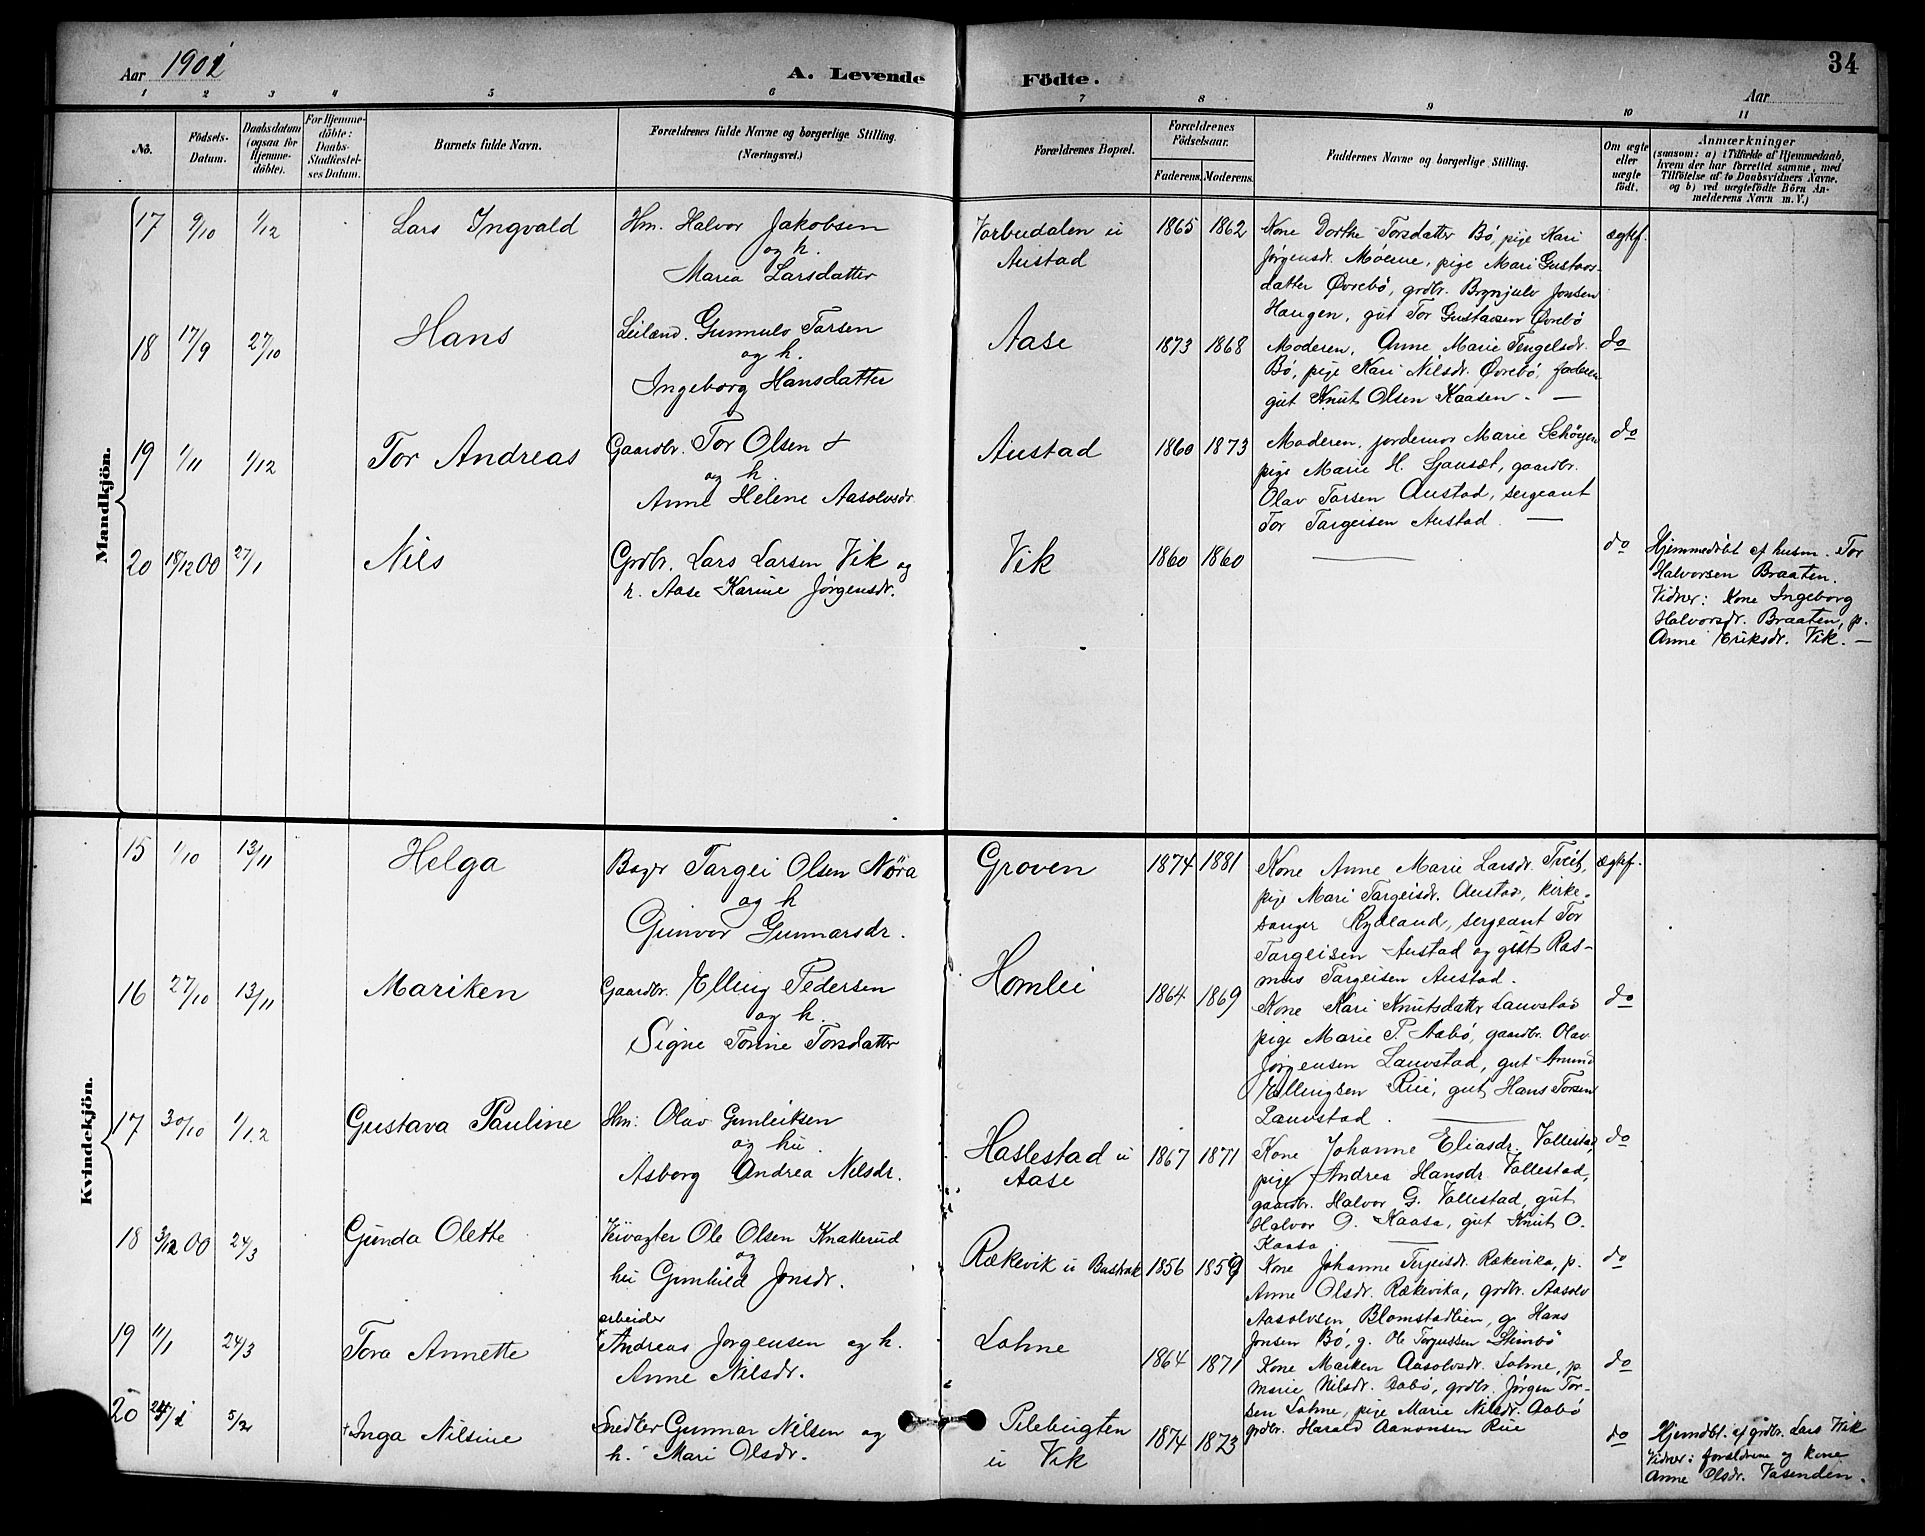 Aar 1901
A. Levende Födte.
34
Aar
1 2 3 4 5 6 7 8 9 10 11
Nō.
Födsels-Datum.
Daabsdatum (ogsaa for Hjemme-döbte).
For Hjemme-döbte: Daabs-Stadfæstel-ses Datum.
Barnets fulde Navn.
Forældrenes fulde Navne og borgerlige Stilling.
(Næringsvei.)
Forældrenes Bopæl.
Forældrenes Födselsaar.
Faderens. Moderens.
Faddernes Navne og borgerlige Stilling.
Om ægte eller uægte födt.
Anmærkninger
(saasom: a) i Tilfælde af Hjemmedaab,
hvem der har forrettet samme, med
Tilföielse af to Daabsvidners Navne,
og b) ved uægtefödte Börn An-
melderens Navn m.V.)
Mandkjön.
17 9/10 1/12 Lars Ingvald
Hm. Halvor Jakobsen
og h.
Maria Larsdatter
Vorbudalen u
Austad
1865 1862
Kone Dorthe Torsdatter Bö, pige Kari
Jørgensdr. Moerne, pige Mari Gustavs-
datter Øvrebö, grdbr. Brynjulv Jonsen
Haugen, gut Tor Gustavsen Øvrebö
ægtef.
18 17/9 27/10 Hans
Leilænd. Gunnulv Torsen
og h.
Ingeborg Hansdatter
Aase
1873 1868
Moderen, Anne Marie Tengelsdr.
Bö, pige Kari Nilsdr. Øvrebö, faderen
gut Knut Olsen Kaasen. —
do
19 1/11 1/12 Tor Andreas
Gaardbr. Tor Olsen
og h.
Anne Helene Aasolvsdr
Austad
1860 1873
Moderen, jordemor Marie Schöyen
pige Marie H. Sjauset, gaardbr.
Olav Torsen Austad, sergeant
Tor Targeisen Austad. —
do
20 18/12 00 27/1 Nils
Grdbr. Lars Larsen Vik og
h. Aase Karine Jörgensdr.
Vik
1860 1860
—
do
Hjemmedöbt af husm. Tor
Halvorsen Braaten.
Vidner: Kone Ingeborg
Halvorsdr. Braaten, p.
Anne Eriksdr. Vik. —
Kvindekjön.
15 1/10 13/11 Helga
Targei Olsen Nöra
og h
Gunvor Gunnarsdr.
Groven
1874 1881
Kone Anne Marie Larsdr. Tveit,
pige Mari Targeisdr. Austad, kirke-
sanger Rydland, sergeant Tor
Targeisen Austad og gut Ras-
mus Targeisen Austad.
ægtef.
16 27/10 13/11 Mariken
Gaardbr. Elling Pedersen
og h.
Signe Torine Torsdatter
Homlei
1864 1869
Kone Kari Knutsdatter Lauvstad
pige Marie P. Aabö, gaardbr. Olav
Jörgensen Lauvstad, gut Amund
Ellingsen Rui, gut Hans Torsen
Lauvstad.
do
17 30/10 1/12 Gustava Pauline
Hm: Olav Gunleiksen
og hu
Asborg Andrea Nilsdr.
Haslestad u
Aase
1867 1871
Kone Johanne Eliasdr. Vallestad,
pige Andrea Hansdr. Vallestad,
gaardbr. Halvor G. Vallestad, gut
Halvor O. Kaasa, gut Knut O.
Kaasa. —
do
18 3/12 00 24/3 Gunda Olette
Veivogter Ole Olsen Knatterud
og
hu Gunhild Jonsdr.
Rækevik u
1856 1859
Kone Johanne Tergeisdr. Rækevika, p.
Anne Olsdr. Rækevika, grdbr. Aasolv
Aasolvsen Blomstadlien, g. Hans
Jonsen Bö, g. Ole Torjussen
do
19 11/1 24/3 Tora Annette
arbeider
Andreas Jørgensen og h.
Anne Nilsdr.
Lohne
1864 1871
Kone Marken Aasolvsdr. Lohne, p.
Marie Nilsdr. Aabö, grdbr. Jørgen Tor-
sen Lohne, pige Marie Nilsdr. Aabö
grdbr. Harald Aanonsen Rui
do
20 5/2 † Inga Nilsine
Snedker Gunnar Nilsen og
h. Mari Olsdr.
Pilebugten
u Vik
1874 1873
do
Hjemdbt. af grdbr. Lars Vik
Vidner: forældrene og kone
Anne Olsdr. Vasenden.